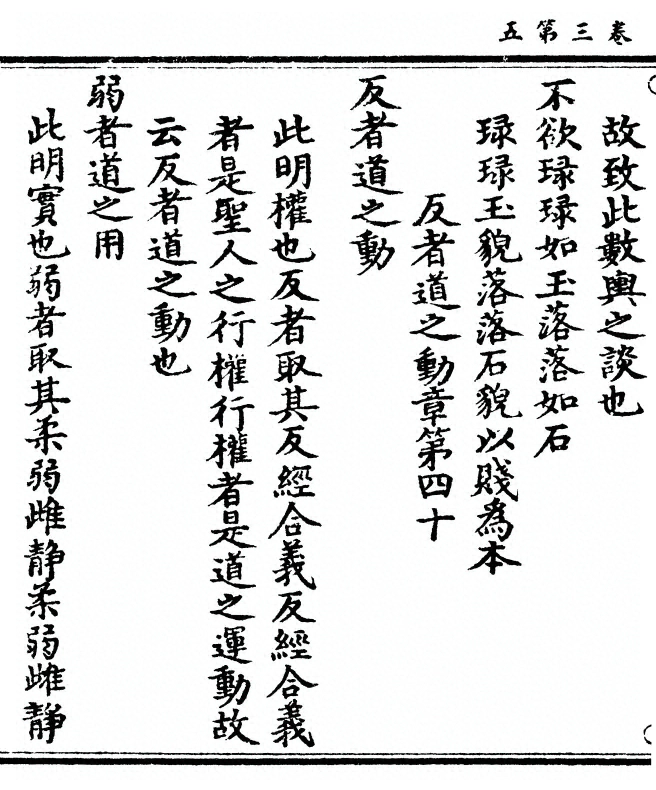 卷三第五
故致此數輿之談也
不欲琭琭如玉落落如石
琭琭玉貌落落石貌以賤為本
反者道之動章第四十
反者道之動
此明權也反者取其反經合義反經合義
者是聖人之行權行權者是道之運動故
云反者道之動也
弱者道之用
此明實也弱者取其柔弱雌靜柔弱雌靜